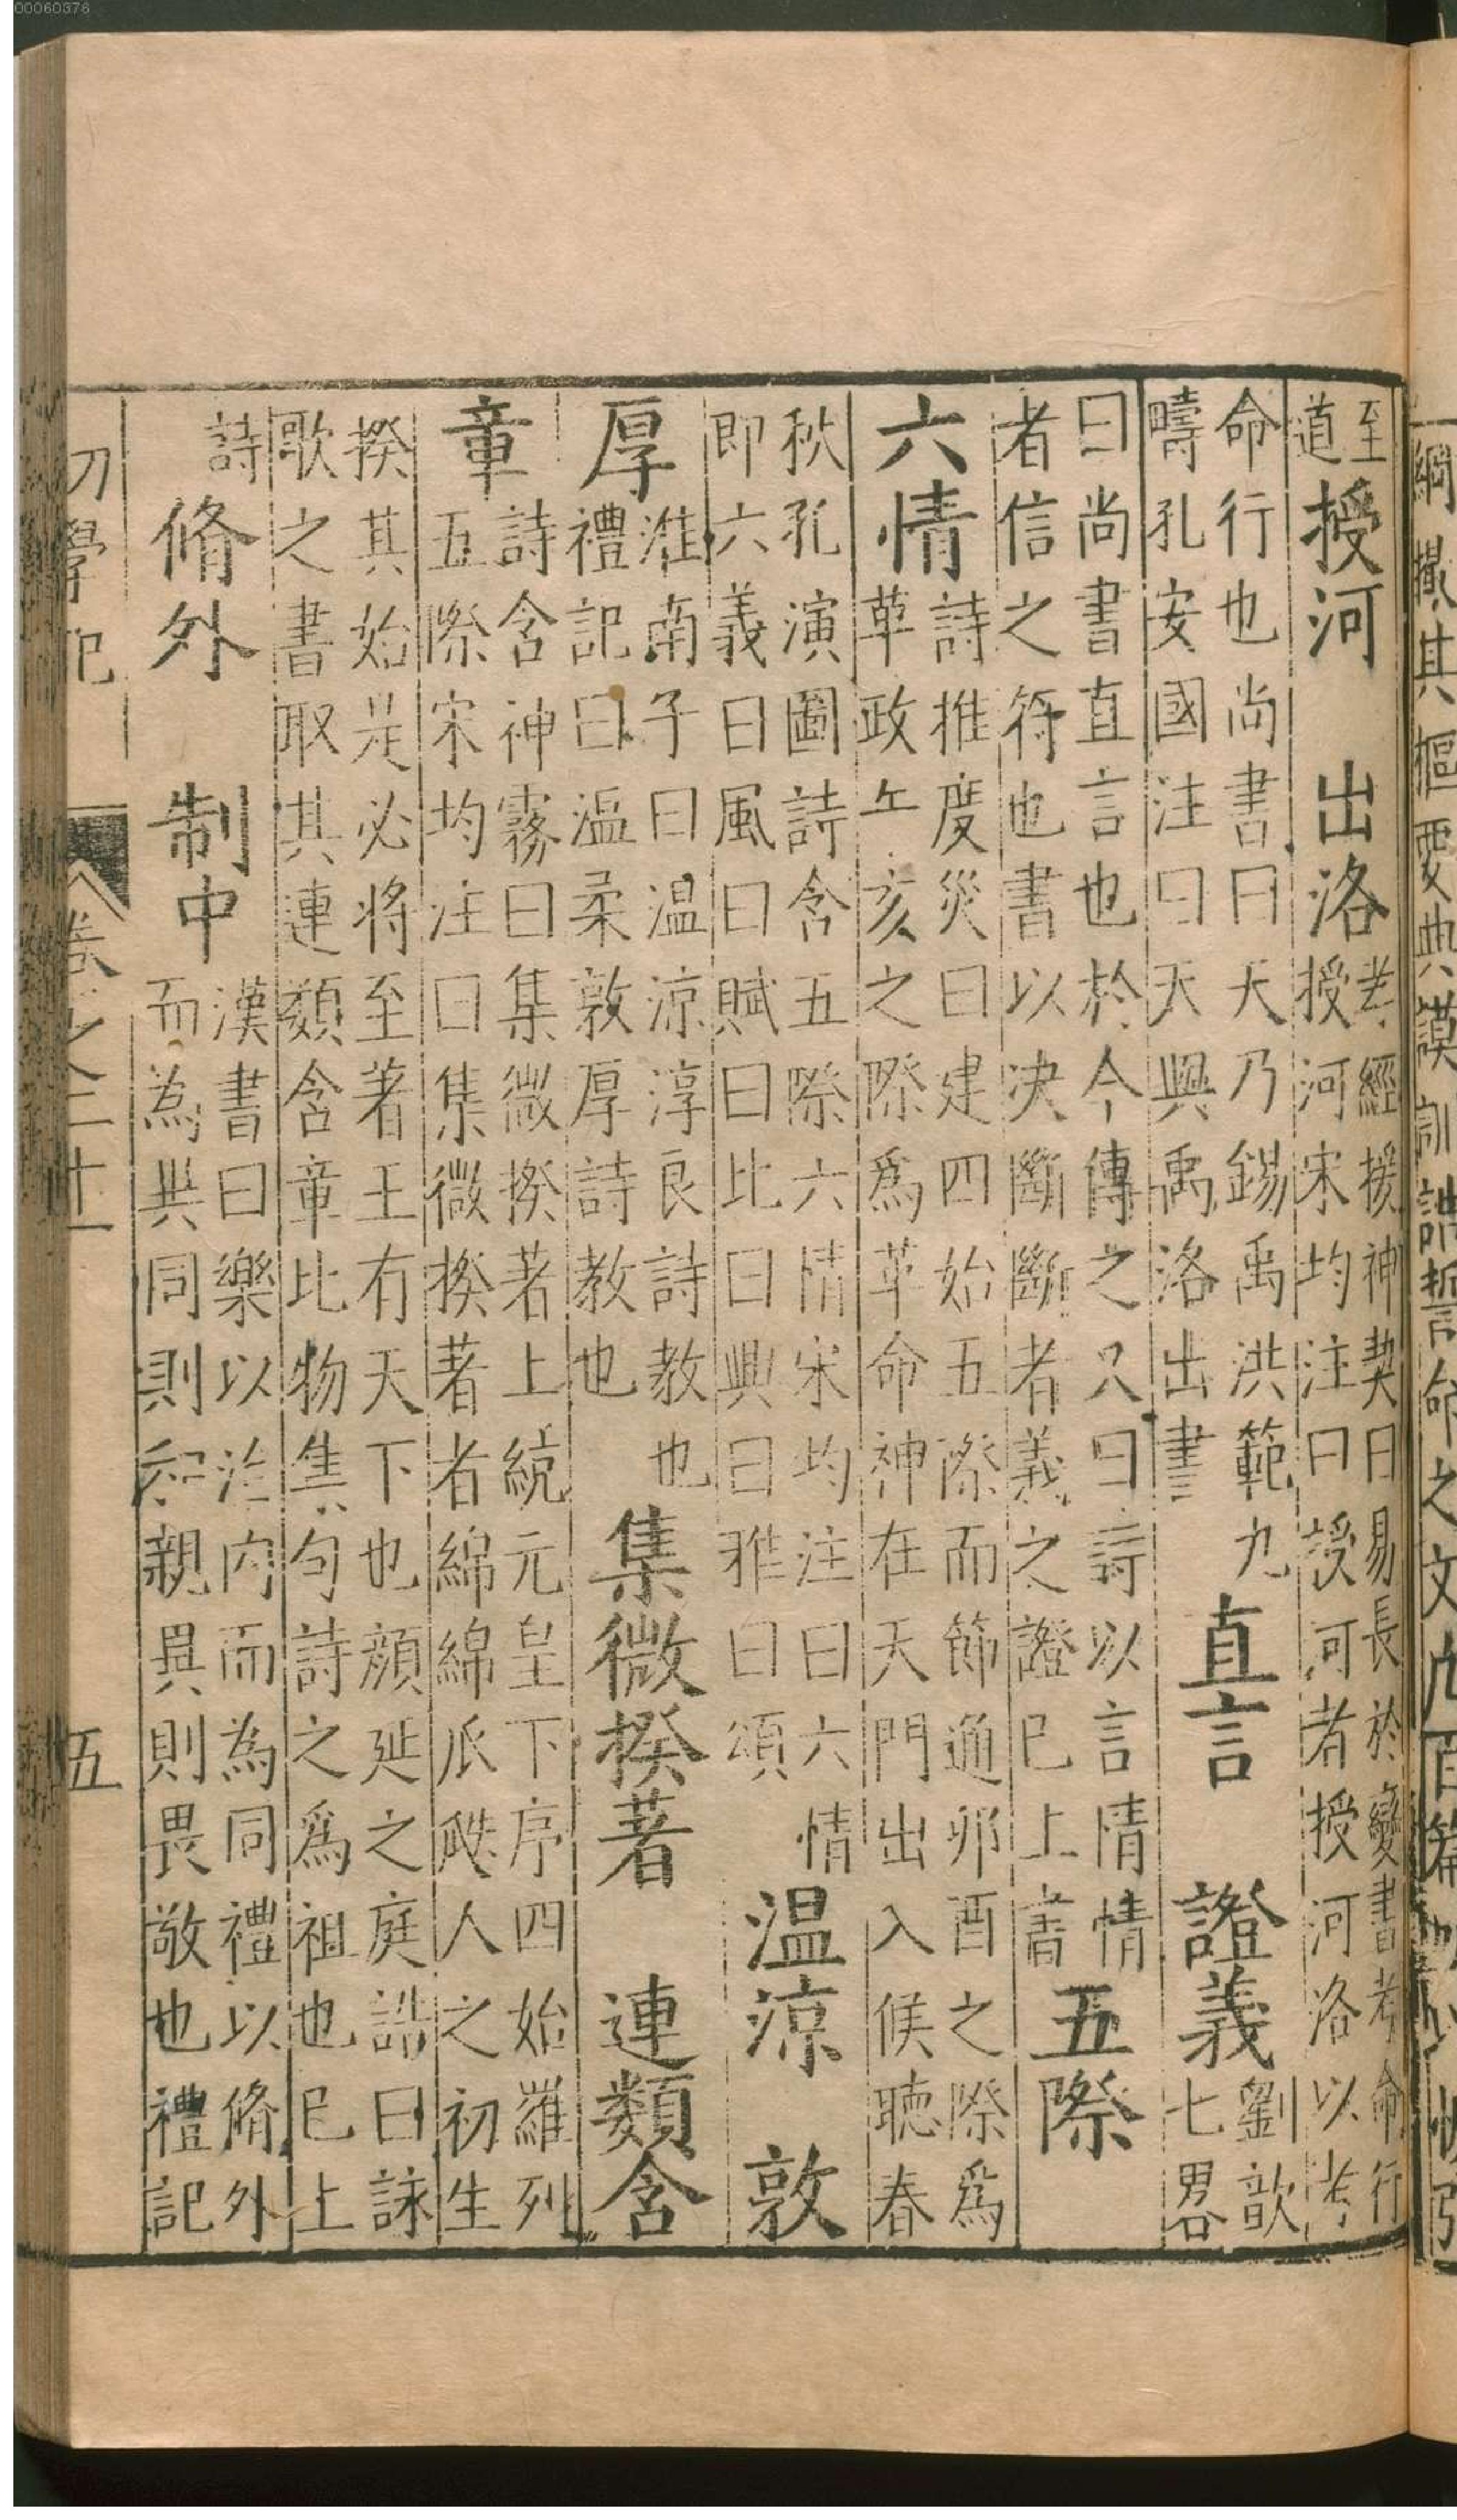 綱撮其樞要典謨訓誥誓命之文凡百篇
至
道
授河 出洛
孝經援神契曰易長於變書考命行
授河宋均注曰授河者授河洛以考
命行也尚書曰天乃錫禹洪範九
疇孔安國注曰天與禹洛出書
直言 證義
劉歆
七畧
曰尚書直言也於今傳之又曰詩以言情情
者信之符也書以决斷斷者義之證已上書
五際
六情
詩推度災曰建四始五際而節通卯酉之際爲
革政午亥之際爲革命神在天門出入候聴春
秋孔演圖詩含五際六情宋均注曰六情
即六義曰風曰賦曰比曰興曰雅曰頌
温涼 敦
厚
淮南子曰温涼淳良詩教也
禮記曰溫柔敦厚詩教也
集微揆著 連類含
章
詩含神霧曰集微揆著上統元皇下序四始羅列
五際宋均注曰集微揆著者綿綿瓜瓞人之初生
揆其始是必将至著王有天下也顏延之庭誥曰詠
歌之書取其連類含章比物集句詩之爲祖也已上
詩
脩外 制中
漢書曰樂以治内而為同禮以脩外
而為異同則和親異則畏敬也禮記
初學記 卷之二十一 五
00060376